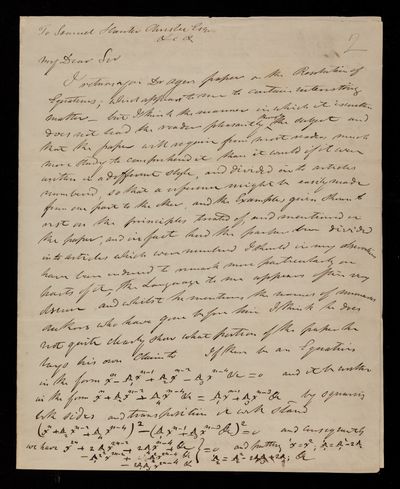 To Samuel Hunter Christie Esqr
&c &c
2
My Dear Sir
I return you Dr paper on the Resolution of
Equations, which appears to me to contain interesting
matter - but I think the manner in which it is written
does not lead the reader pleasantly the subject and
that the paper will require from most readers much
more study to comprehend it than it would if it were
written in a different style, and divided into articles
numbered, so that a reference might be easily made
from one part to the other, and the Examples given
rest on the principles treated of and mentioned in
the paper, and in fact had the paper been divided
into articles which were numbered I should in my observations
have been induced to remark more particularly on
parts of it, the Language to me appears often very
obscure and whilst he mentions the names of numerous
authors who have gone before him I think he does
not quite clearly shew what portion of the paper he
lays his own claim to If there be an Equation
in the form xⁿ - A₁xⁿ⁻¹ + A₂xⁿ⁻² - A₃xⁿ⁻³ &c = 0 and it be written
in the form xⁿ + A₂xⁿ⁻² + A₄xⁿ⁻⁴ &c = A₁xⁿ⁻¹ + A₃xⁿ⁻³ &c by squaring
both sides and transposition it will stand
(xⁿ + A₂xⁿ⁻² + A₄xⁿ⁻⁴)² - (A₁xⁿ⁻¹ + A₃xⁿ⁻³ &c)² = 0 and consequently
we have x²ⁿ + 2A₂x²ⁿ⁻² + 2A₄x²ⁿ⁻⁴ &c
= 0 and putting